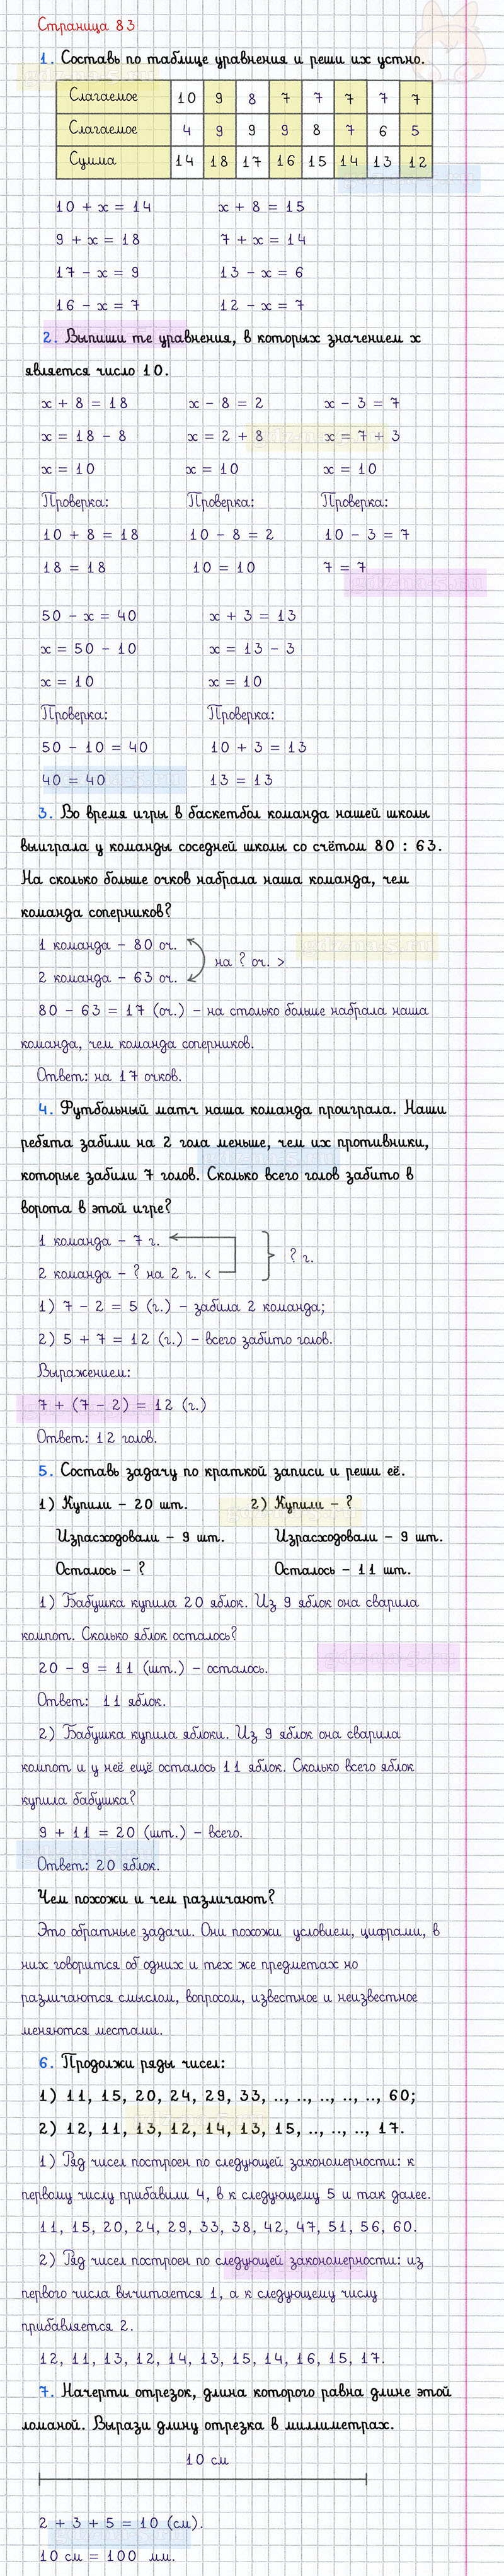 Страница 83
1. Составь по таблице уравнения и реши их устно.
Слагаемое 10 9 8 7 7 7 7 7
Слагаемое 4 9 9 9 8 7 6 5
Сумма 14 18 17 16 15 14 13 12
10 + х = 14 х + 8 = 15
9 + х = 18 7 + х = 14
17 - х = 9 13 - х = 6
16 - х = 7 12 - х = 7
2. Выпиши те уравнения, в которых значением х
является число 10.
х + 8 = 18 х - 8 = 2 х - 3 = 7
х = 18 - 8 х = 2 + 8 х = 7 + 3
х = 10 х = 10 х = 10
Проверка: Проверка: Проверка:
10 + 8 = 18 10 - 8 = 2 10 - 3 = 7
18 = 18 10 = 10 7 = 7
50 - х = 40 х + 3 = 13
х = 50 - 10 х = 13 - 3
х = 10 х = 10
Проверка: Проверка:
50 - 10 = 40 10 + 3 = 13
40 = 40 13 = 13
3. Во время игры в баскетбол команда нашей школы
выиграла у команды соседней школы со счётом 80 : 63.
На сколько больше очков набрала наша команда, чем
команда соперников?
1 команда - 80 оч.
на ? оч. >
2 команда - 63 оч.
80 - 63 = 17 (оч.) - на столько больше набрала наша
команда, чем команда соперников.
Ответ: на 17 очков.
4. Футбольный матч наша команда проиграла. Наши
ребята забили на 2 гола меньше, чем их противники,
которые забили 7 голов. Сколько всего голов забито в
ворота в этой игре?
1 команда - 7 г.
? г.
2 команда - ? на 2 г. <
1) 7 - 2 = 5 (г.) - забила 2 команда;
2) 5 + 7 = 12 (г.) - всего забито голов.
Выражением:
7 + (7 - 2) = 12 (г.)
Ответ: 12 голов.
5. Составь задачу по краткой записи и реши её.
1) Купили - 20 шт. 2) Купили - ?
Израсходовали - 9 шт. Израсходовали - 9 шт.
Осталось - ? Осталось - 11 шт.
1) Бабушка купила 20 яблок. Из 9 яблок она сварила
компот. Сколько яблок осталось?
20 - 9 = 11 (шт.) - осталось.
Ответ: 11 яблок.
2) Бабушка купила яблоки. Из 9 яблок она сварила
компот и у неё ещё осталось 11 яблок. Сколько всего яблок
купила бабушка?
9 + 11 = 20 (шт.) - всего.
Ответ: 20 яблок.
Чем похожи и чем различают?
Это обратные задачи. Они похожи условием, цифрами, в
них говорится об одних и тех же предметах но
различаются смыслом, вопросом, известное и неизвестное
меняются местами.
6. Продолжи ряды чисел:
1) 11, 15, 20, 24, 29, 33, .., .., .., .., .., 60;
2) 12, 11, 13, 12, 14, 13, 15, .., .., .., 17.
1) Ряд чисел построен по следующей закономерности: к
первому числу прибавили 4, в к следующему 5 и так далее.
11, 15, 20, 24, 29, 33, 38, 42, 47, 51, 56, 60.
2) Ряд чисел построен по следующей закономерности: из
первого числа вычитается 1, а к следующему числу
прибавляется 2.
12, 11, 13, 12, 14, 13, 15, 14, 16, 15, 17.
7. Начерти отрезок, длина которого равна длине этой
ломаной. Вырази длину отрезка в миллиметрах.
10 см
2 + 3 + 5 = 10 (см).
10 см = 100 мм.